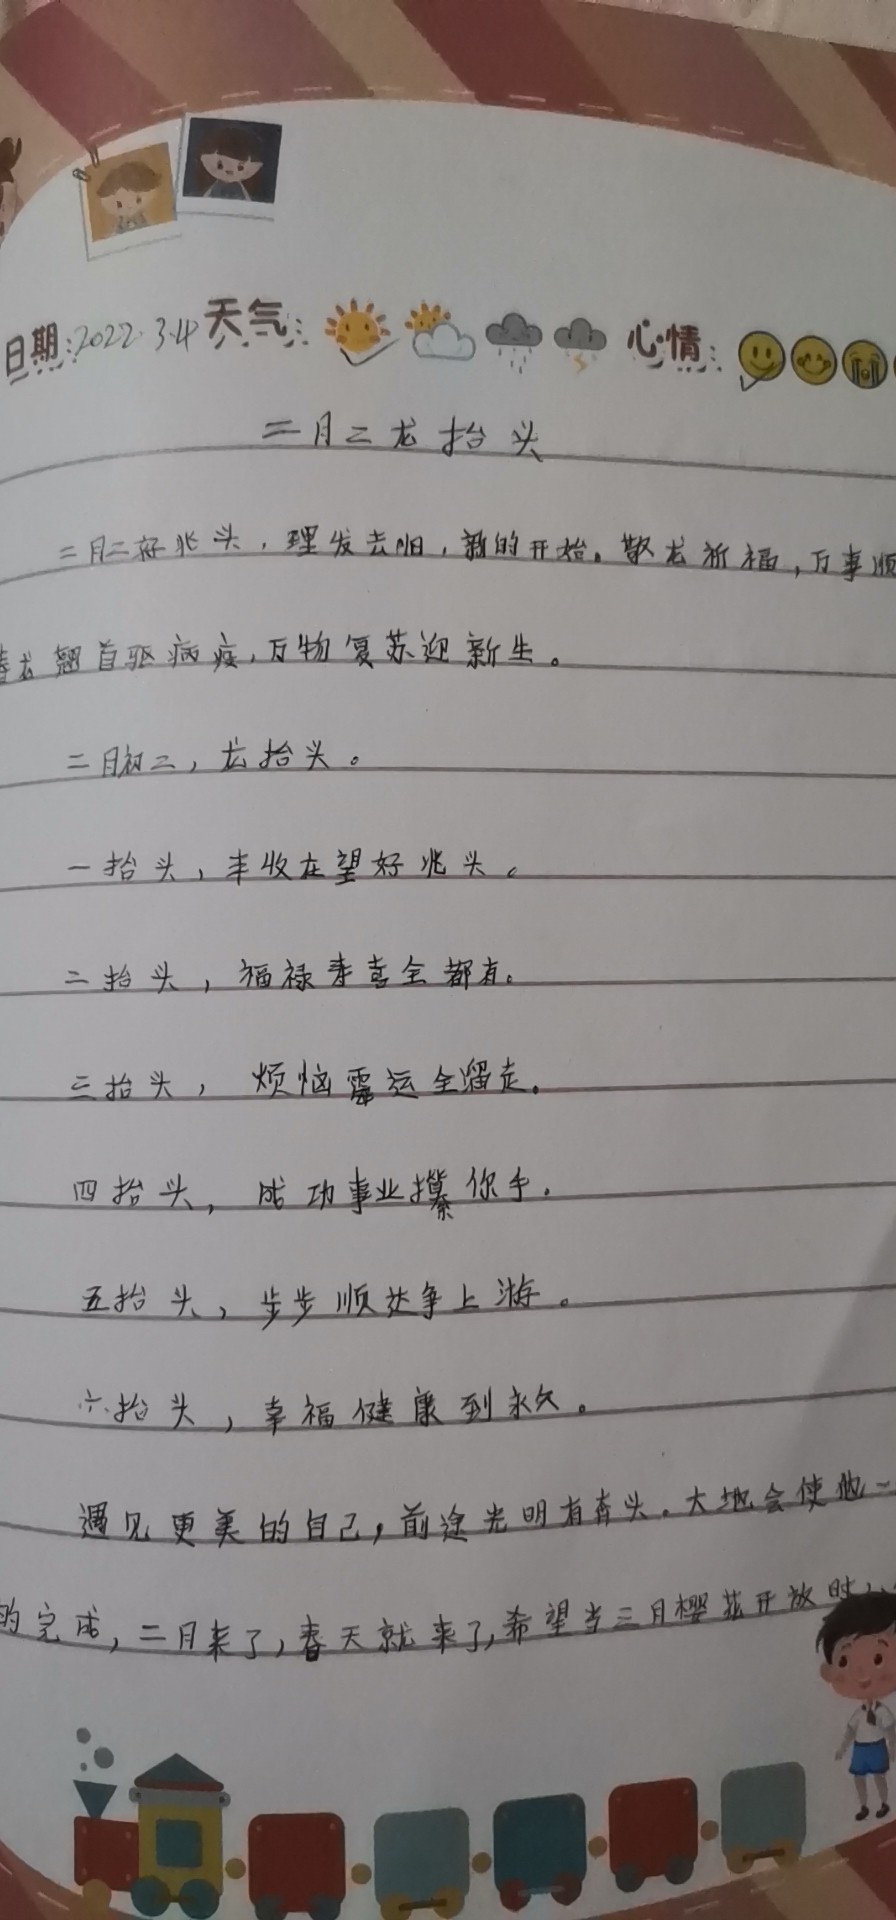 日期:2022.3.4 天气: 心情:
二月二龙抬头
二月二好兆头，理发去旧，新的开始。敬龙祈福，万事顺
春龙翘首驱病疫，万物复苏迎新生。
二月初二，龙抬头。
一抬头，丰收在望好兆头。
二抬头，福禄寿喜全都有。
三抬头，烦恼霉运全溜走。
四抬头，成功事业攥你手。
五抬头，步步顺达争上游。
六抬头，幸福健康到永久。
遇见更美的自己，前途光明有奔头。大地会使他一
的完成，二月来了，春天就来了，希望当三月樱花开放时，